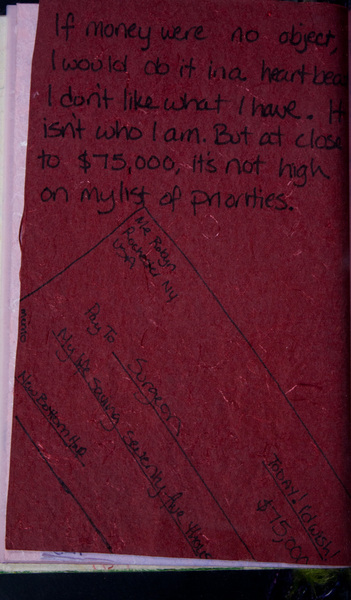 If money were no object,
I would do it in a heartbea
I don't like what I have. It
isn't who I am. But at close
to $75,000, it's not high
on my list of priorities.
Me Robyn
Rochester NY
USA
Pay To Surgeon
My Life Saving Seventy-five
Today! (I wish)
$75,000
memo
New Bottom Half